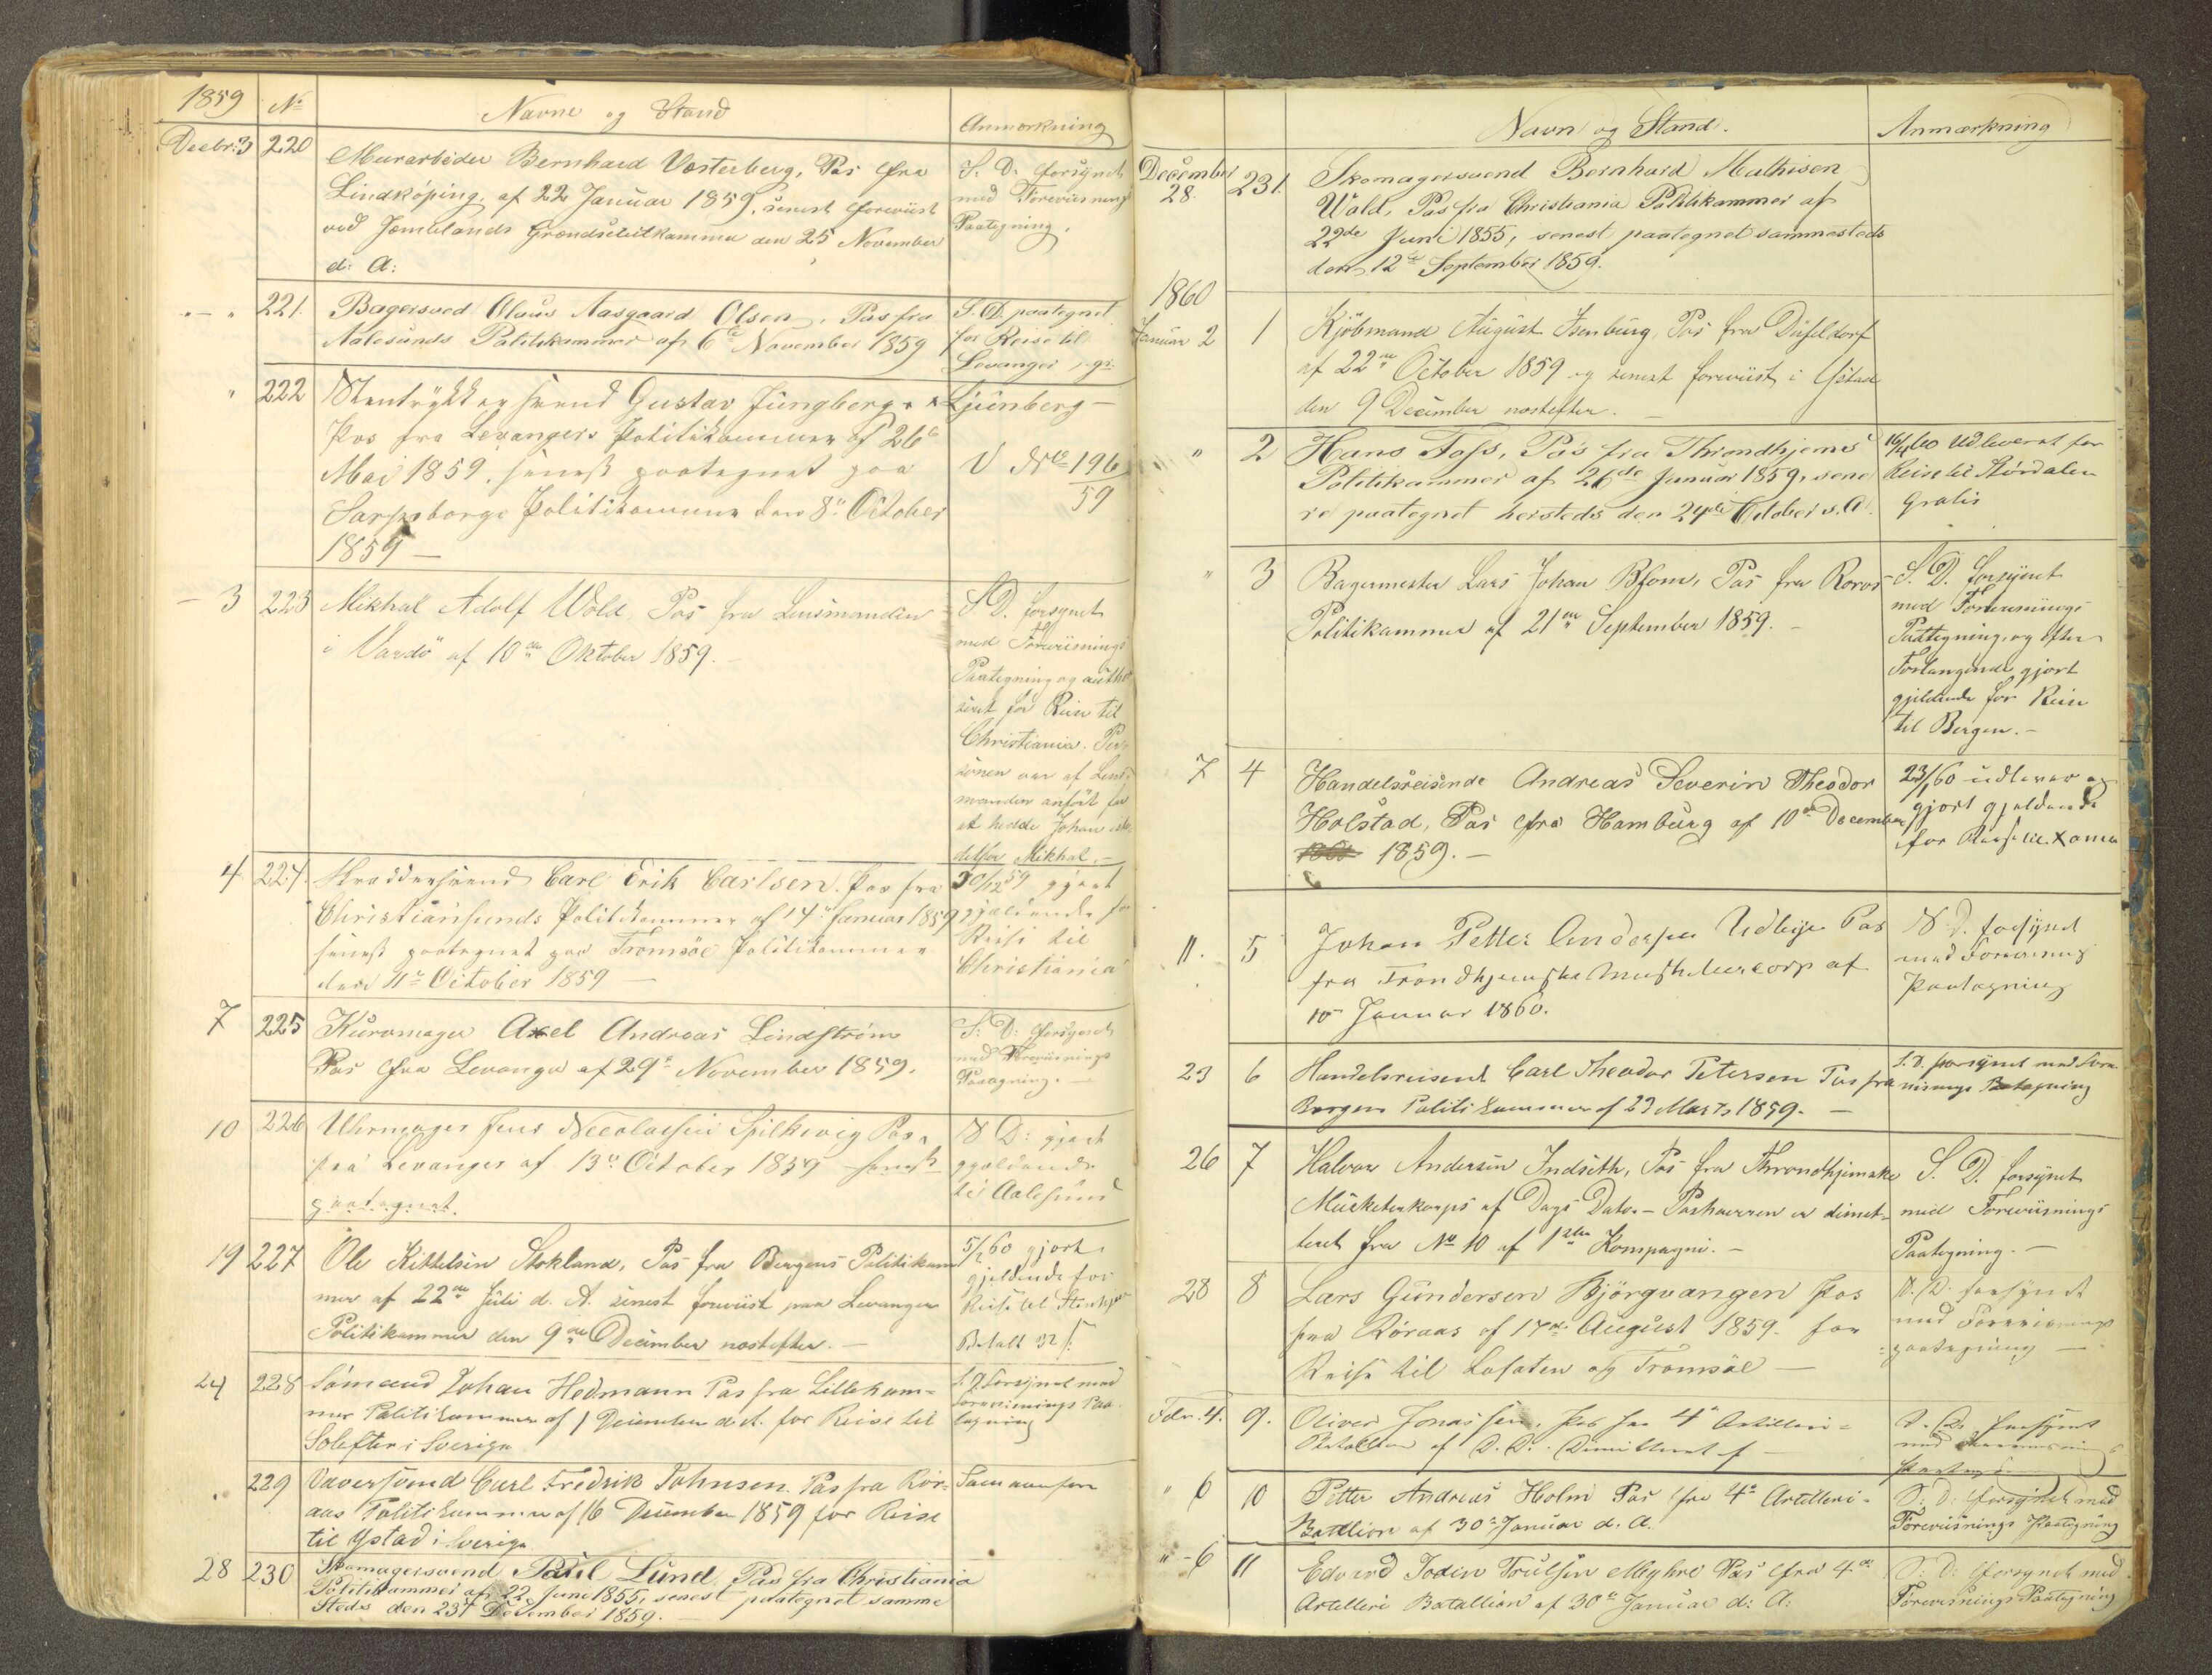 1859 No Navne og Stand Anmærkning
Decbr: 3 220 Murarbeider Bernhard Vesterberg, Pas fra
Lindköping, af 22 Januar 1859, senest foreviist
ved Jemtlands Grændsetolkammer den 25 November
d: A:
S. D. forsynet
med Forevisnings
Paategning.
" 221. Bagersvend Olaus Aasgaard Olsen, Pas fra
Aalesunds Politikammer af 6te November 1859
S. D. paategnet
for Reise til
Levanger, gr.
" 222 Stentrykkersvend Gustav Jüngberg, x
Pas fra Levangers Politikammer af 26e
Mai 1859, senest paategnet paa
Sarpsborgs Politikammer den 8de October
1859 —
x Ljünberg —
V No 196
59
- 3 223 Mikhal Adolf Wold, Pas fra Lensmanden
i Vardö af 10de Oktober 1859. -
S. D. forsynet
med Forevisnings
Paategning og autho
riseret for Reise til
Christiania. Per-
sonen var af Lens-
manden anfört for
at hedde Johan iste-
detfor Mikhal. -
4 224. Skræddersvend Carl Erik Carlsen. Pas fra
Christiansunds Politikammer af 14de Januar 1859
senest paategnet paa Tromsöe Politikammer
den 11te October 1859 —
30/12 59 gjort
gjældende for
Reise til
Christiania
7 225 Kuromager Axel Andreas Lindström
Pas fra Levanger af 29de November 1859.
S: D: forsynet
med Forevisnings
Paategning. —
10 226 Uhrmager Jens Nicolaisen Spilkevig Pas
fra Levanger af 13de October 1859 senest
paategnet.
S D: gjort
gjældende
til Aalesund
19 227 Ole Kittelsen Stokland, Pas fra Bergens Politikam
mer af 22de Juli d. A. senest foreviist paa Levanger
Politikammer den 9de December næstefter. —
5/1 60 gjort
gjeldende for
Reise til Stenkjær
Betalt 32 s.
24 228 Sömand Johan Hedmann Pas fra Lilleham-
mer Politikammer af 1 December d. A. for Reise til
Solefter i Sverige
S. D. forsynet med
Forevisnings Paa-
tegning
229 Væversvend Carl Fredrik Johnsen. Pas fra Rör-
aas Politikammer af 16 December 1859 for Reise
til Ystad i Sverige
Som ovenfor
28 230 Skomagersvend Paul Lund, Pas fra Christiania
Politikammer af 22 Juni 1855, senest paategnet samme
Steds den 23de December 1859. —
Navn og Stand. Anmærkning
December
28. 231. Skomagersvend Bernhard Mathisen
Wold, Pas fra Christiania Politikammer af
22de Juni 1855, senest paategnet sammesteds
den 12te September 1859.
1860
Januar 2 1 Kjöbmand August Isenburg, Pas fra Düsseldorf
af 22de October 1859 og senest foreviist i Ystad
den 9 December næstefter. —
" 2 Hans Foss, Pas fra Throndhjems
Politikammer af 26de Januar 1859, sene
re paategnet hersteds den 24de October s. A.
16/4 60 Udleveret for
Reise til Stördalen
Gratis
" 3 Bagermester Lars Johan Blom, Pas fra Roros
Politikammer af 21de September 1859. -
S. D. forsynet
med Forevisnings
Paategning, og efter
Forlangende gjort
gjeldende for Reise
til Bergen. -
7 4 Handelsreisende Andreas Severin Theodor
Holstad, Pas fra Hamburg af 10de December
1859. —
23/1 60 udlever og
gjort gjeldende
for Reise til
11. 5 Johan Petter Andersen Udbye Pas
fra Trondhjemske Musketeercorps af
10de Januar 1860.
S. D. forsynet
med Forevisnings
Paategning
23 6 Handelsreisend Carl Theodor Petersen Pas fra
Bergens Politikammer af 23 Marts 1859. —
S. D. forsynet med Fore-
visnings Paategning
26 7 Halvor Andersen Indseth, Pas fra Throndhjemske
Musketeerkorps af Dags Dato. - Pashaveren er dimit-
teret fra No 10 af 1ste Kompagni. -
S. D. forsynet
med Forevisnings
Paategning. -
28 8 Lars Gundersen Björgvangen Pas
fra Röraas af 17de August 1859. for
Reise til Lofoten og Tromsöe —
S. D. forsynet
med Forevisnings
paategning —
Febr. 4. 9. Oliver Jonassen, Pas fra 4de Artilleri-
Batallion af D. D. Dimitteret
S. D. forsynet
med Forevisnings
" 6 10 Petter Andreas Holm Pas fra 4de Artilleri-
Batallion af 30te Januar d. A.
S: D: forsynet med
Forevisnings Paategning
" - 6 11 Edvard Jodin Trulsen Myhre Pas fra 4de
Artilleri Batallion af 30te Januar d: A:
S: D: forsynet med
Forevisnings Paategning